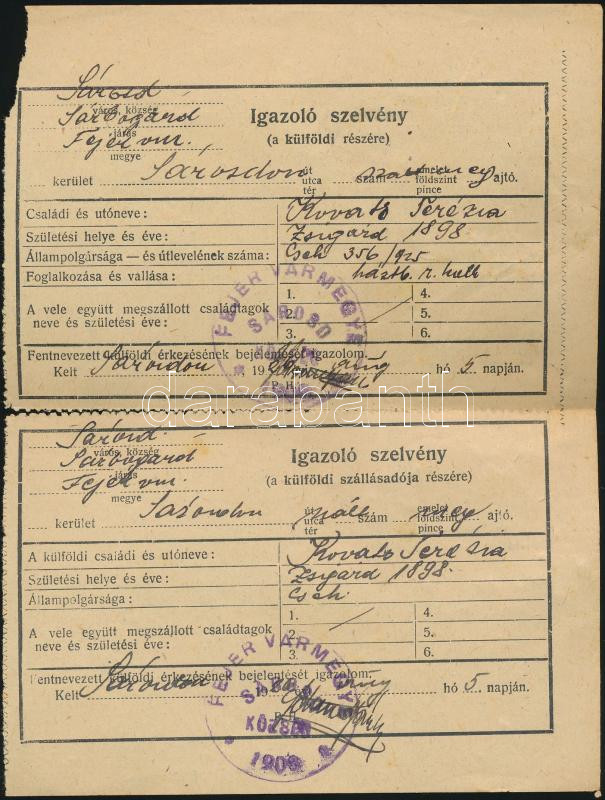 Sárosd
város, község
Sárbogárd
járás
Fejér vm.
megye
Igazoló szelvény
(a külföldi részére)
kerület Sárosdon út utca tér szám emelet földszint pince ajtó.
Családi és utóneve: Kovats Terézia
Születési helye és éve: Zsigárd 1898
Állampolgársága — és útlevelének száma: Cseh 356/925
Foglalkozása és vallása: háztb. r. kath
A vele együtt megszállott családtagok neve és születési éve:
1. 4.
2. 5.
3. 6.
Fentnevezett külföldi érkezésének bejelentését igazolom.
Kelt Sárosdon 19 aug hó 5 napján.
P. H.
FEJÉR VÁRMEGYE
SÁROSD
KÖZSÉG
Sárosd.
város, község
Sárbogárd
járás
Fejér vm.
megye
Igazoló szelvény
(a külföldi szállásadója részére)
kerület Sárosdon út utca tér szám emelet földszint pince ajtó.
A külföldi családi és utóneve: Kovats Terézia
Születési helye és éve: Zsigárd 1898.
Állampolgársága: Cseh.
A vele együtt megszállott családtagok neve és születési éve:
1. 4.
2. 5.
3. 6.
Fentnevezett külföldi érkezésének bejelentését igazolom.
Kelt Sárosdon 19 aug hó 5 napján.
FEJÉR VÁRMEGYE
SÁROSD
KÖZSÉG
1909
darabanth